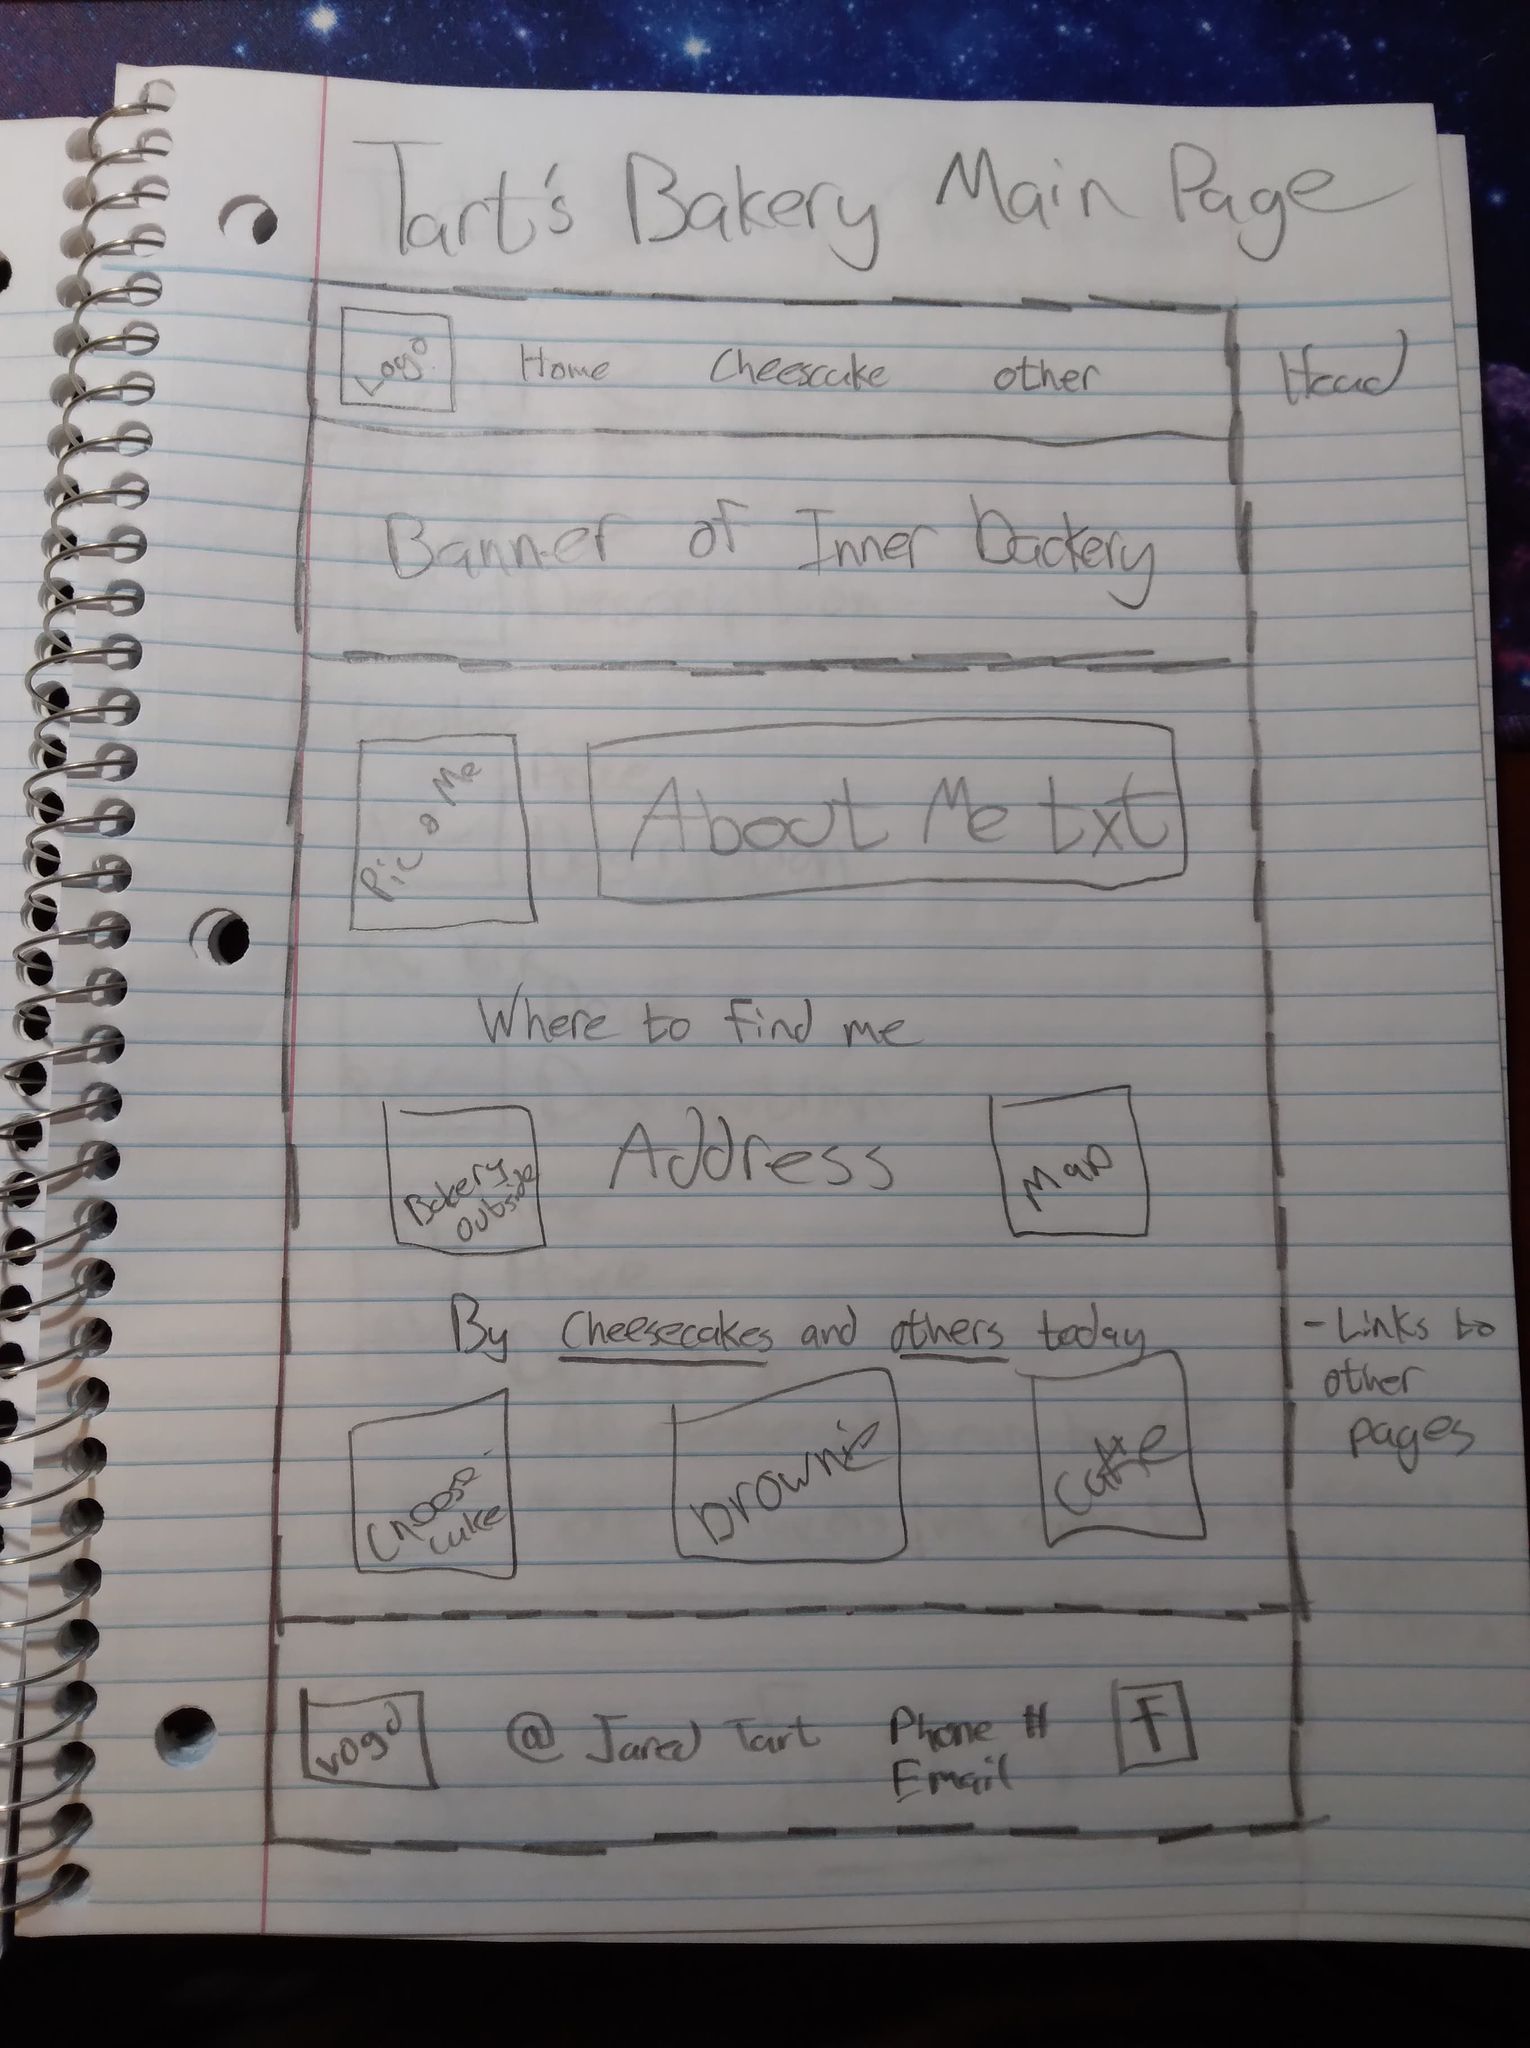 Tart's Bakery Main Page
Logo Home Cheesecake other Head
Banner of Inner backery
Pic o Me About Me txt
Where to find me
Bakery
outside
Address
Map
By Cheesecakes and others today
- Links to
other
pages
Cheese
cake
brownie
Logo @ Jared Tart Phone # f
Email